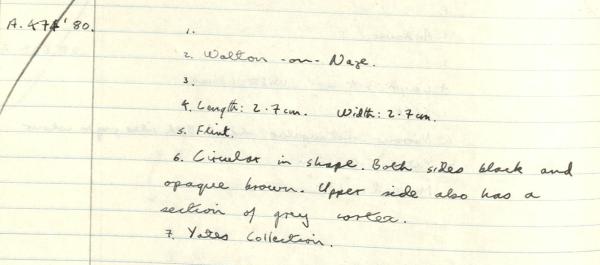 A. 474 '80.
1.
2. Walton-on-Naze.
3.
4. Length: 2.7cm. Width: 2.7cm.
5. Flint.
6. Circular in shape. Both sides black and
opaque brown. Upper side also has a
section of grey cortex.
7. Yates Collection.